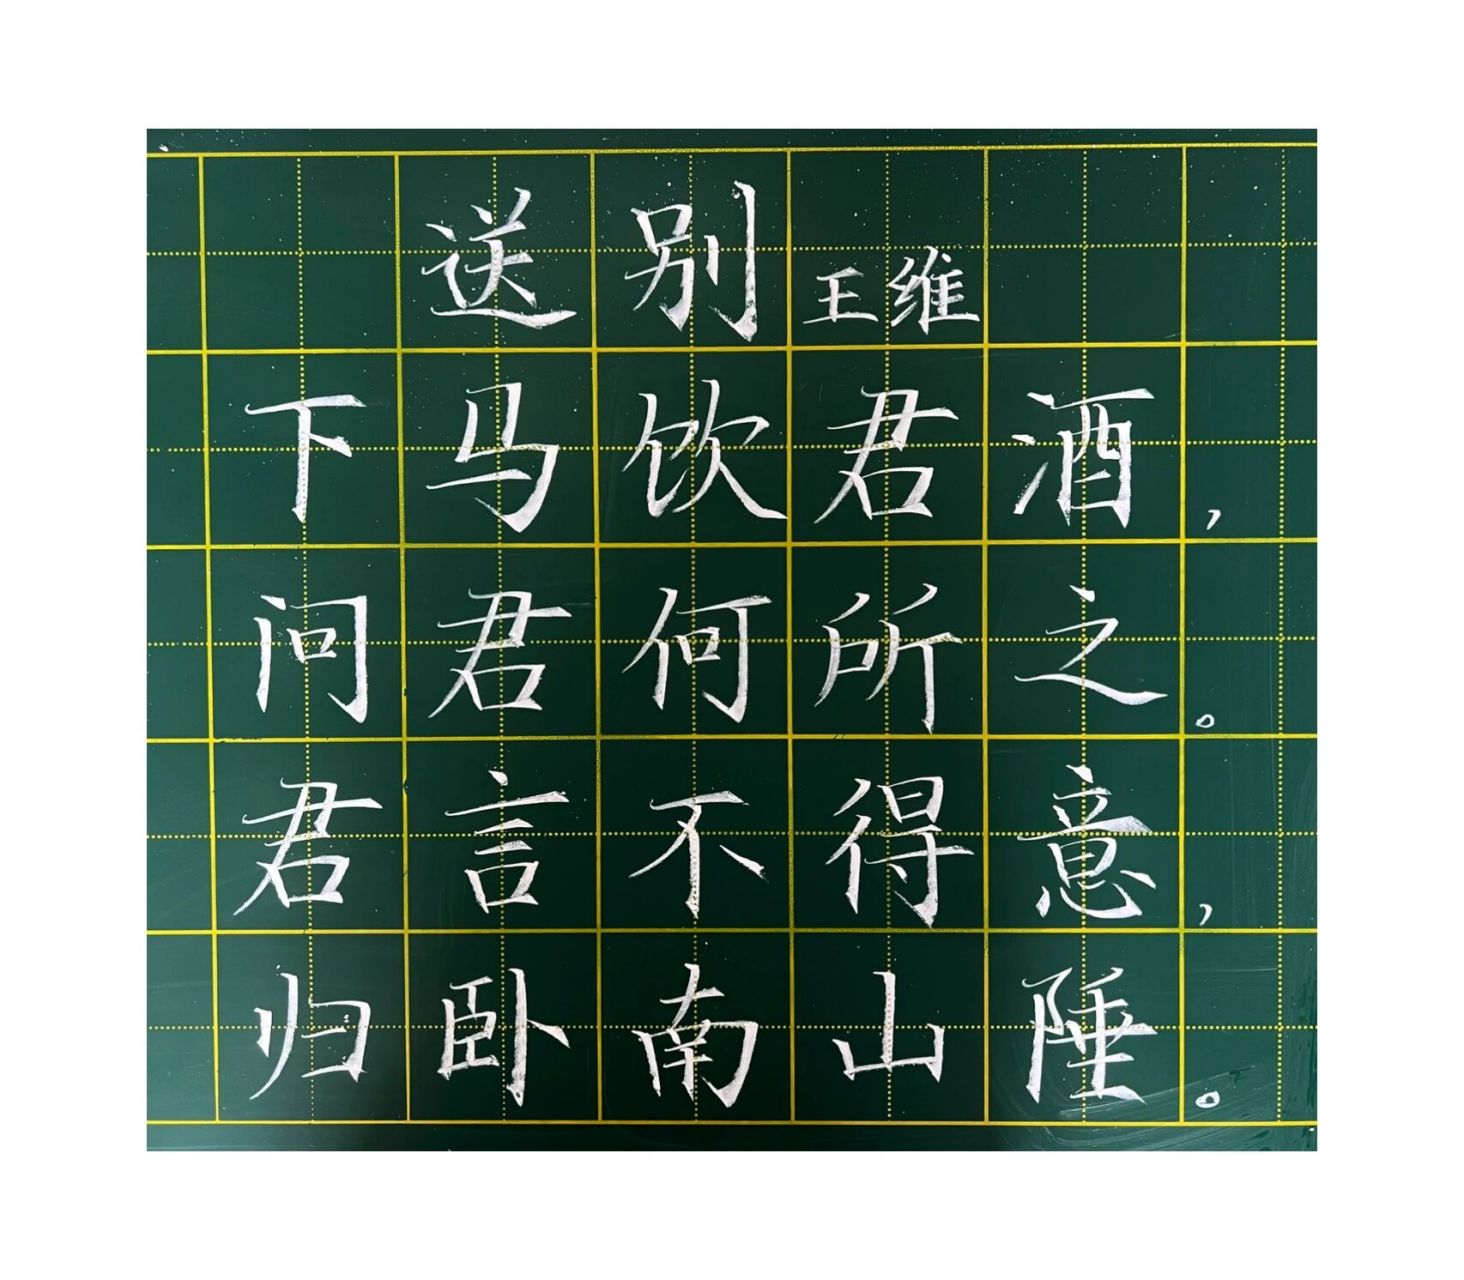 送别 王维
下马饮君酒，
问君何所之。
君言不得意，
归卧南山陲。